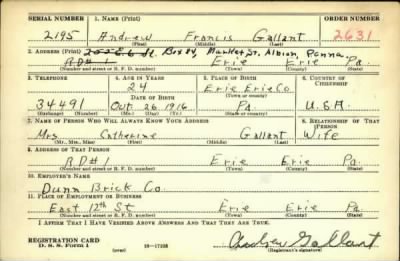 SERIAL NUMBER 1. NAME (Print) ORDER NUMBER
2195 Andrew Francis Gallant 2631
(First) (Middle) (Last)
2. ADDRESS (Print) Box 84, Market St. Albion, Penna.
RD#1 Erie Erie Pa.
(Number and street or R. F. D. number) (Town) (County) (State)
3. TELEPHONE 4. AGE IN YEARS 5. PLACE OF BIRTH 6. COUNTRY OF CITIZENSHIP
24 Erie Erie Co.
DATE OF BIRTH (Town or county)
34491 Oct. 26. 1916 Pa U.S.A.
(Exchange) (Number) (Mo.) (Day) (Yr.) (State or country)
7. NAME OF PERSON WHO WILL ALWAYS KNOW YOUR ADDRESS 8. RELATIONSHIP OF THAT PERSON
Mrs Catherine Gallant Wife
(Mr., Mrs., Miss) (First) (Middle) (Last)
9. ADDRESS OF THAT PERSON
RD#1 Erie Erie Pa.
(Number and street or R. F. D. number) (Town) (County) (State)
10. EMPLOYER'S NAME
Dunn Brick Co.
11. PLACE OF EMPLOYMENT OR BUSINESS
East 12th St Erie Erie Pa.
(Number and street or R. F. D. number) (Town) (County) (State)
I AFFIRM THAT I HAVE VERIFIED ABOVE ANSWERS AND THAT THEY ARE TRUE.
REGISTRATION CARD
D. S. S. Form 1 (over) 16—17105 Andrew Gallant
(Registrant's signature)